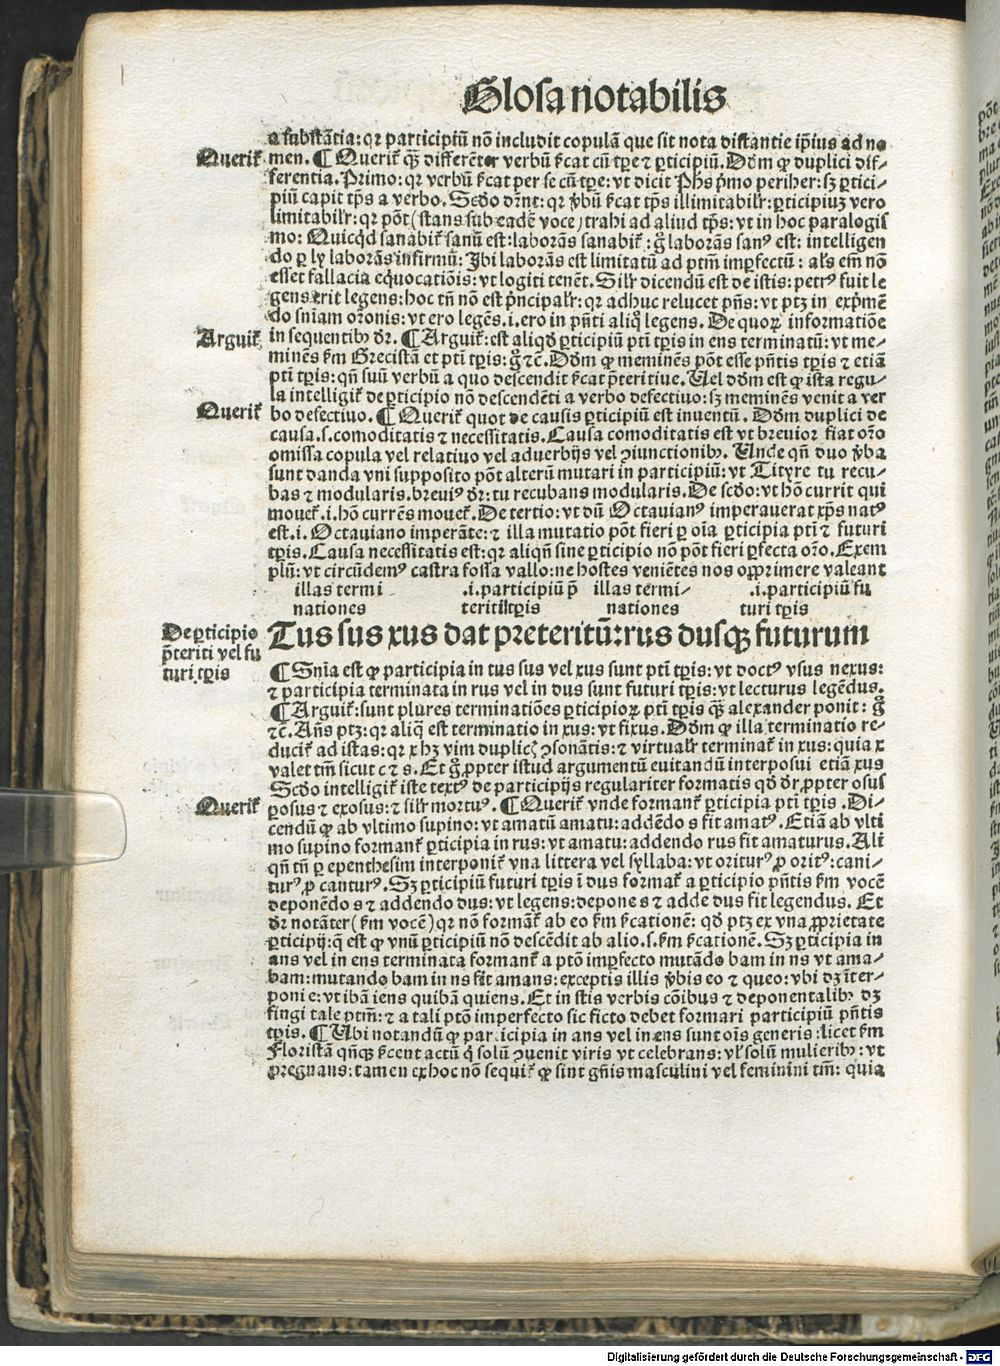 Glosa notabilis
a substãtia: qꝛ participiũ nõ includit copulã que sit nota distantie ip̃ius ad no
Querit᷑
men. ¶ Querit᷑ qũo differẽter verbũ ſ̃cat cũ tp̃e ⁊ ꝑticipiũ. Dõm ꝙ duplici dif⸗
ferentia. Primo: qꝛ verbũ ſ̃cat per se cũ tp̃e: vt dicit Ph̃s p̃mo periher: sꝫ ꝑtici⸗
piũ capit tp̃s a verbo. Scḋo dr̃nt: qꝛ v̾bũ ſ̃cat tp̃s illimitabilr̃: ꝑticipiuꝫ vero
limitabilr̃: qꝛ põt (stans sub eadẽ voce) trahi ad aliud tp̃s: vt in hoc paralogis
mo: Quicqͥd sanabit᷑ sanũ est: laborãs sanabit᷑: g̊ laborãs sanꝰ est: intelligen
do ꝑ ly laborãs infirmũ: Ibi laborãs est limitatũ ad ptm̃ imꝑfectũ: als em̃ nõ
esset fallacia equocatiõis: vt logiti tenẽt. Silr̃ dicendũ est de istis: petrꝰ fuit le
gens: erit legens: hoc tñ nõ est pͥncipalr̃: qꝛ adhuc relucet pñs: vt ptꝫ in expͥmẽ
do sniam oronis: vt ero legẽs .i. ero in pñti aliqͥ legens. De quoꝝ informatiõe
Arguit᷑
in sequentibꝰ dr̃. ¶ Arguit᷑: est aliqḋ ꝑticipiũ pti tp̃is in ens terminatũ: vt me⸗
minẽs ẜm Grecistã et pti tp̃is: g̊ ⁊c̃. Dõm ꝙ meminẽs põt esse pñtis tp̃is ⁊ etiã
pti tp̃is: qñ suũ verbũ a quo descendit ſ̃cat p̃teritiue. Uel dõm est ꝙ ista regu⸗
la intelligit᷑ de ꝑticipio nõ descendẽti a verbo defectiuo: sꝫ meminẽs venit a ver
Querit᷑
bo defectiuo. ¶ Querit᷑ quot de causis ꝑticipiũ est inuentũ. Dõm duplici de
causa .s. comoditatis ⁊ necessitatis. Causa comoditatis est vt breuior fiat oro
omissa copula vel relatiuo vel aduerbijs vel ꝯiunctionibꝰ. Unde qñ duo v̾ba
sunt danda vni supposito põt alterũ mutari in participiũ: vt Tityre tu recu⸗
bas ⁊ modularis. breuiꝰ dr̃: tu recubans modularis. De scḋo: vt hõ currit qui
mouet᷑ .i. hõ currẽs mouet᷑. De tertio: vt dũ Octauianꝰ imperauerat xp̃s natꝰ
est .i. Octauiano imperãte: ⁊ illa mutatio põt fieri ꝑ oĩa ꝑticipia pti ⁊ futuri
tp̃is. Causa necessitatis est: qꝛ aliqñ sine ꝑticipio nõ põt fieri ꝑfecta oro. Exem
plũ: vt circũdemꝰ castra fossa vallo: ne hostes veniẽtes nos oꝓprimere valeant
illas termi .i. participiũ p̃ illas termi⸗ .i. participiũ fu
nationes teriti tp̃is nationes turi tp̃is
De ꝑticipio
p̃teriti vel fu
turi tp̃is
Tus sus xus dat preteritũ: rus dusqꝫ futurum
¶ Snia est ꝙ participia in tus sus vel xus sunt pti tp̃is: vt doctꝰ vsus nexus:
⁊ participia terminata in rus vel in dus sunt futuri tp̃is: vt lecturus legẽdus.
¶ Arguit᷑: sunt plures terminatiões ꝑticipioꝝ pti tp̃is qͣꝫ alexander ponit: g̊
⁊c̃. Añs ptꝫ: qꝛ aliq̃ est terminatio in xus: vt fixus. Dõm ꝙ illa terminatio re⸗
ducit᷑ ad istas: qꝛ x hꝫ vim duplicꝭ ꝯsonãtis: ⁊ virtualr̃ terminat᷑ in xus: quia x
valet tm̃ sicut c ⁊ s. Et g̊ ꝓpter istud argumentũ euitandũ interposui etiã xus
Scḋo intelligit᷑ iste textꝰ de participijs regulariter formatis qḋ dr̃ ꝓpter osus
Querit᷑
ꝑosus ⁊ exosus: ⁊ silr̃ mortuꝰ. ¶ Querit᷑ vnde formant᷑ ꝑticipia pti tp̃is. Di⸗
cendũ ꝙ ab vltimo supino: vt amatũ amatu: addẽdo s fit amatꝰ. Etiã ab vlti
mo supino formant᷑ ꝑticipia in rus: vt amatu: addendo rus fit amaturus. Ali
qñ tñ ꝑ epenthesim interponit᷑ vna littera vel syllaba: vt oriturꝰ ꝓ oritꝰ: cani⸗
turꝰ ꝓ canturꝰ. Sꝫ ꝑticipiũ futuri tp̃is ĩ dus format᷑ a ꝑticipio pñtis ẜm vocẽ
deponẽdo s ⁊ addendo dus: vt legens: depone s ⁊ adde dus fit legendus. Et
dr̃ notãter (ẜm vocẽ) qꝛ nõ formãt᷑ ab eo ẜm ſ̃cationẽ: qḋ ptꝫ ex vna ꝓprietate
ꝑticipij: q̃ est ꝙ vnũ ꝑticipiũ nõ descẽdit ab alio .s. ẜm ſ̃cationẽ. Sꝫ ꝑticipia in
ans vel in ens terminata formant᷑ a ptõ imꝑfecto mutãdo bam in ns vt ama⸗
bam: mutando bam in ns fit amans: exceptis illis v̾bis eo ⁊ queo: vbi dꝫ ĩter⸗
poni e: vt ibã iens quibã quiens. Et in istis verbis cõibus ⁊ deponentalibꝰ dꝫ
fingi tale ptm̃: ⁊ a tali ptõ imperfecto sic ficto debet formari participiũ pñtis
tp̃is. ¶ Ubi notandũ ꝙ participia in ans vel in ens sunt oĩs generis: licet ẜm
Floristã qñqꝫ ſ̃cent actũ qͥ solũ ꝯuenit viris vt celebrans: vl̃ solũ mulieribꝰ: vt
pregnans: tamen ex hoc nõ sequit᷑ ꝙ sint gñis masculini vel feminini tm̃: quia
Digitalisierung gefördert durch die Deutsche Forschungsgemeinschaft - DFG